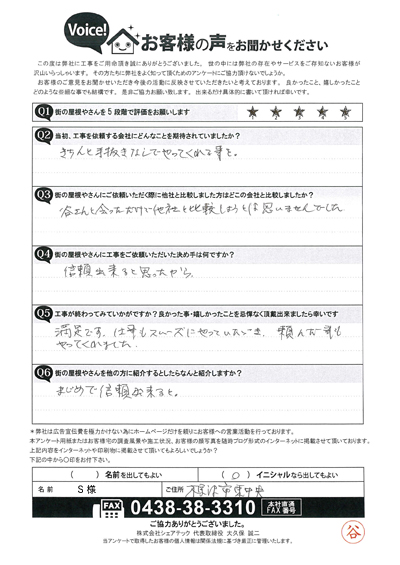 Voice!
お客様の声をお聞かせください
この度は弊社に工事をご用命頂き誠にありがとうございました。世の中には弊社の存在やサービスをご存知ないお客様が
沢山いらっしゃいます。その方たちに弊社をよく知って頂くためのアンケートにご協力頂けないでしょうか。
お客様のご意見をお聞かせいただき今後の活動に反映させていただきたいと考えております。良かったこと、嬉しかったこと
どのような些細な事でも結構です。是非ご協力お願い致します。出来るだけ具体的に書いて頂ければ幸いです。
Q1 街の屋根やさんを5段階で評価をお願いします ★ ★ ★ ★ ★
Q2 当初、工事を依頼する会社にどんなことを期待されていましたか?
きちんと手抜きなしでやってくれる事を。
Q3 街の屋根やさんにご依頼いただく際に他社と比較しました方はどこの会社と比較しましたか?
谷さんと会っただけで他社と比較しようとは思いませんでした
Q4 街の屋根やさんに工事をご依頼いただいた決め手は何ですか?
信頼出来ると思ったから。
Q5 工事が終わってみていかがですか?良かった事・嬉しかったことを忌憚なく頂戴出来ましたら幸いです
満足です。仕事もスムーズにやっていただき、頼んだ事も
やってくれました。
Q6 街の屋根やさんを他の方に紹介するとしたらなんと紹介しますか?
まじめで信頼出来ると。
*弊社は広告宣伝費を極力かけない為にホームページだけを頼りにお客様への営業活動を行っております。
本アンケート用紙またはお客様宅の調査風景や施工状況、お客様の顔写真を随時ブログ形式のインターネットに掲載させて頂いております。
上記内容をインターネットや印刷物に掲載させて頂いてもよろしいでしょうか?
下記の中から〇印をお付下さい。
( )名前を出してもよい (〇)イニシャルなら出してもよい
名前 S様 ご住所 木更津市東中央
FAX 0438-38-3310 本社直通 FAX番号
ご協力ありがとうございました。
株式会社シェアテック 代表取締役 大久保 誠二
当アンケートで取得したお客様の個人情報は関係法規に基づき適正に管理いたします。
谷